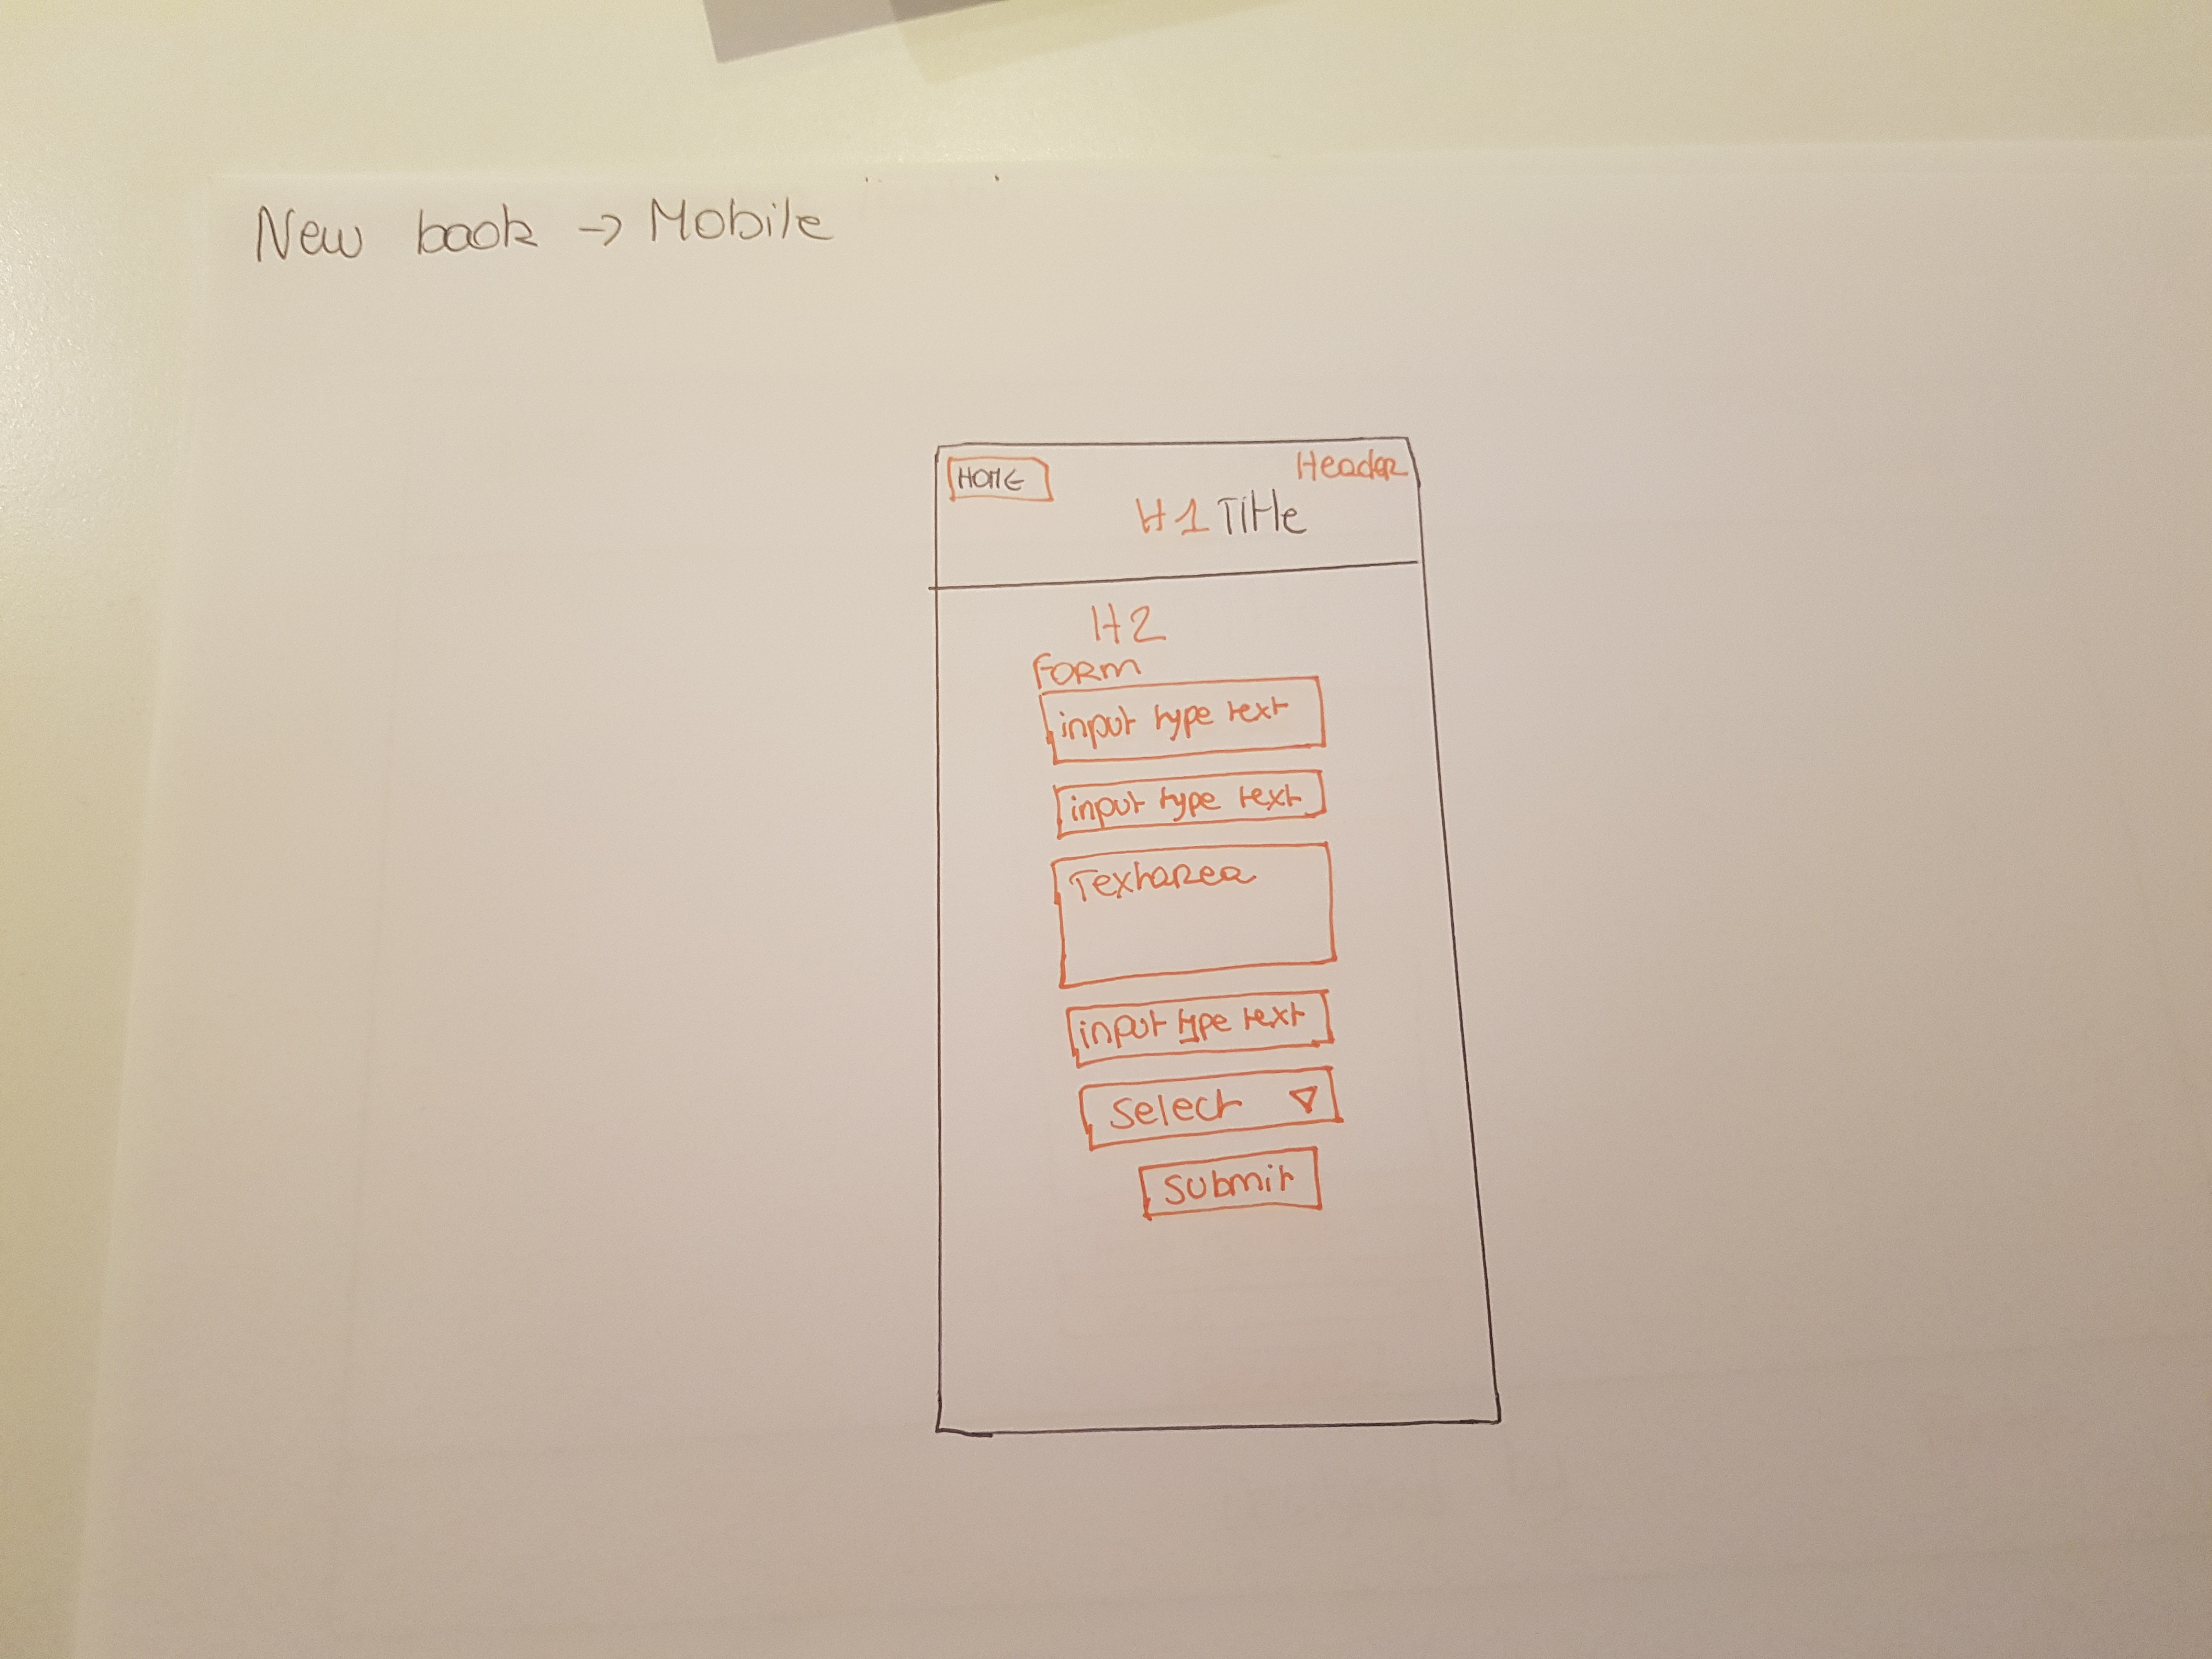 New book → Mobile
HOME
Header
H1 Title
H2
Form
input type text
input type text
Textarea
input type text
Select ▽
Submit